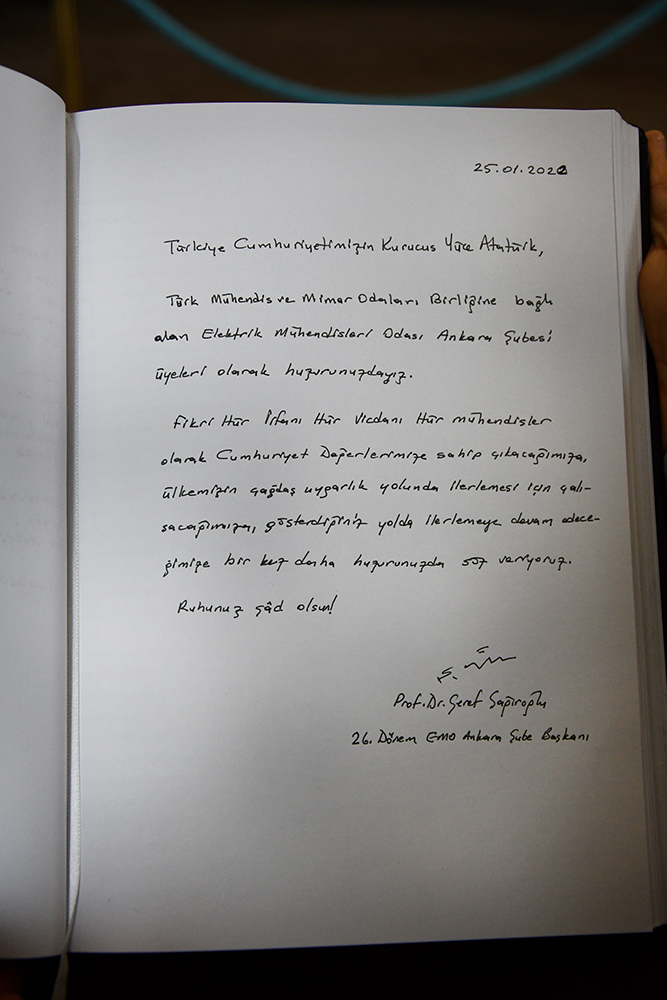 25.01.2022
Türkiye Cumhuriyetimizin Kurucus Yüce Atatürk,
Türk Mühendis ve Mimar Odaları Birliğine bağlı
olan Elektrik Mühendisleri Odası Ankara Şubesi
üyeleri olarak huzurunuzdayız.
Fikri Hür İrfanı Hür Vicdanı Hür mühendisler
olarak Cumhuriyet Değerlerimize sahip çıkacağımıza,
ülkemizin çağdaş uygarlık yolunda ilerlemesi için çalı-
şacağımıza, gösterdiğiniz yolda ilerlemeye devam edece-
ğimize bir kez daha huzurunuzda söz veriyoruz.
Ruhunuz şâd olsun!
Prof.Dr. Şeref Sağıroğlu
26. Dönem EMO Ankara Şube Başkanı